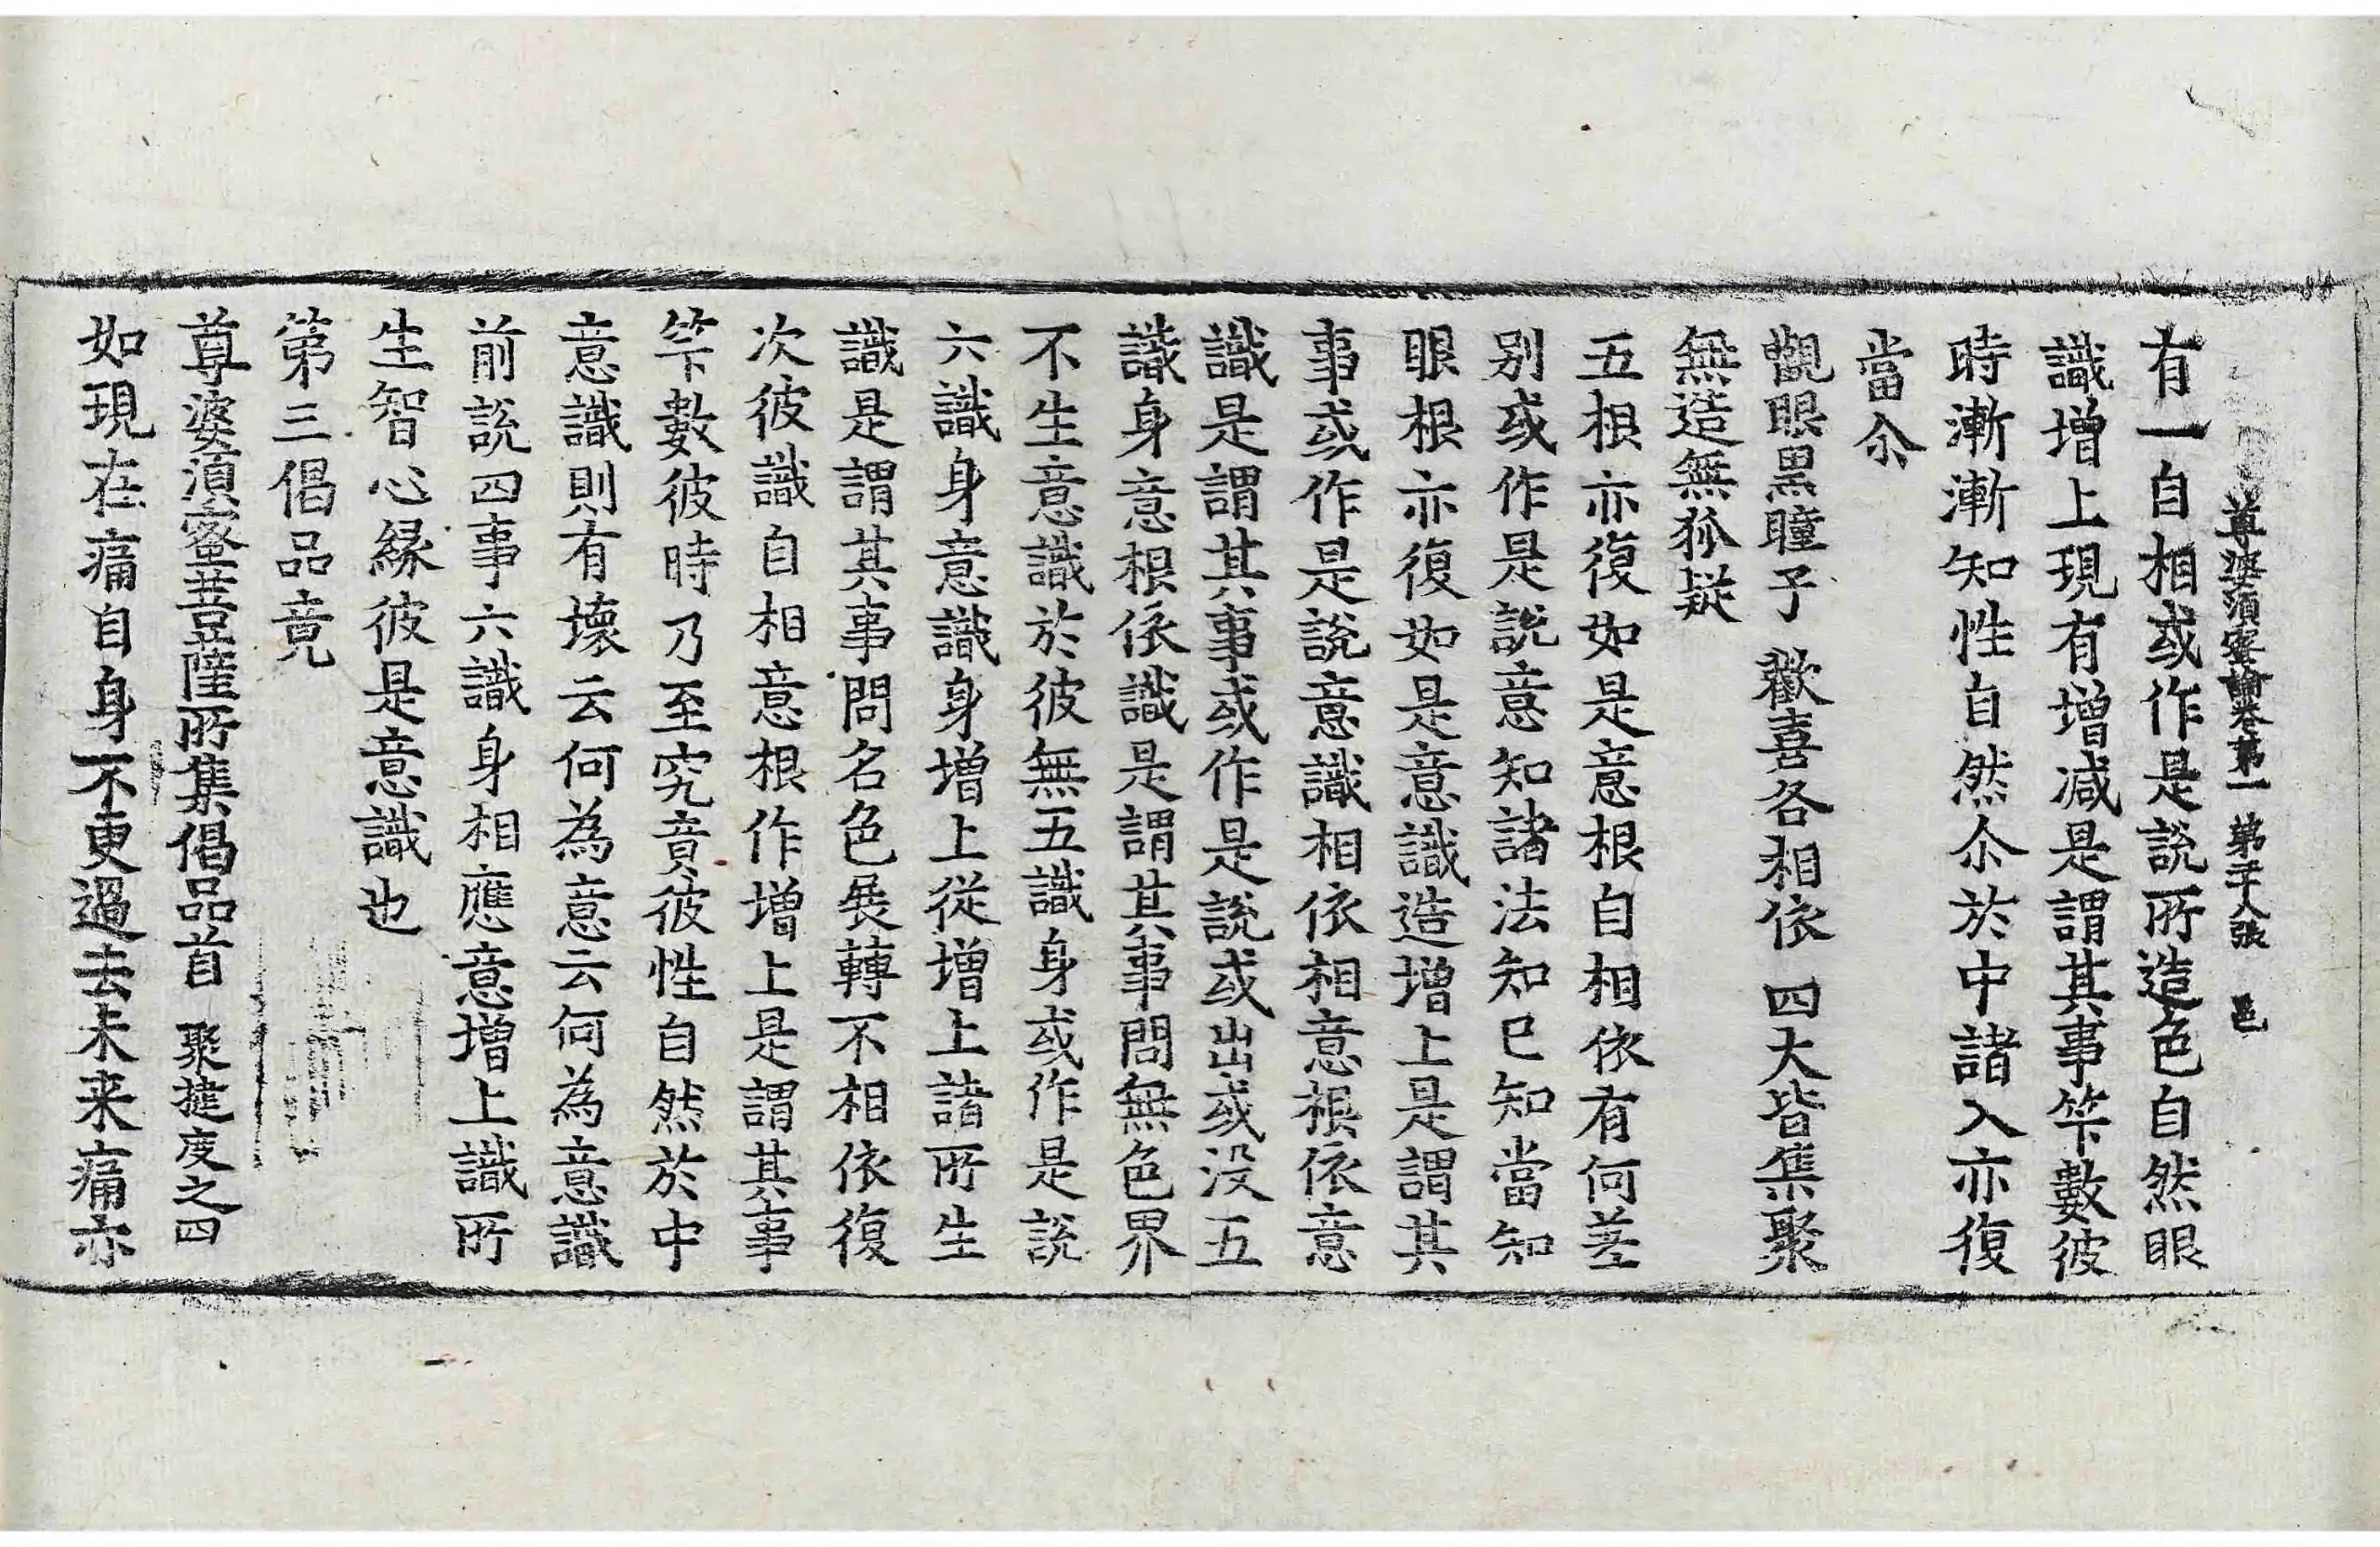 尊婆須蜜論卷第一 第三十八張 邑
有一自相或作是說所造色自然眼
識增上現有增減是謂其事竿數彼
時漸漸知性自然尒於中諸入亦復
當尒
觀眼黑瞳子 歡喜各相依 四大皆集聚
無造無狐疑
五根亦復如是意根自相依有何差
別或作是說意知諸法知已知當知
眼根亦復如是意識造增上是謂其
事或作是說意識相依相意根依意
識是謂其事或作是說或出或没五
識身意根依識是謂其事問無色界
不生意識於彼無五識身或作是說
六識身意識身增上從增上諸所生
識是謂其事問名色展轉不相依復
次彼識自相意根作增上是謂其事
竿數彼時乃至究竟彼性自然於中
意識則有壞云何為意云何為意識
前說四事六識身相應意增上識所
生智心緣彼是意識也
第三偈品竟
尊婆須蜜菩薩所集偈品首 聚揵度之四
如現在痛自身不更過去未来痛亦